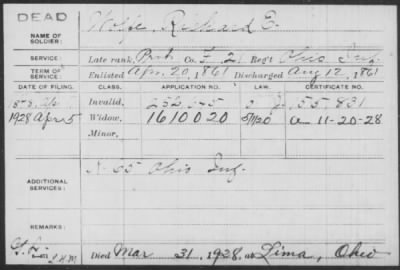 DEAD
NAME OF SOLDIER:
Wolfe, Richard E.
SERVICE:
Late rank, Prvt Co. F, 21 Reg't Ohio Inf.
TERM OF SERVICE:
Enlisted Apr. 20, 1861 Discharged Aug 12, 1861
DATE OF FILING. CLASS. APPLICATION NO. LAW. CERTIFICATE NO.
Invalid,
1928 Apr 5 Widow, 1610020 5/1/20 a 11-20-28
Minor,
ADDITIONAL SERVICES:
K. 65 Ohio Inf.
REMARKS:
Died Mar 31, 1928, at Lima, Ohio